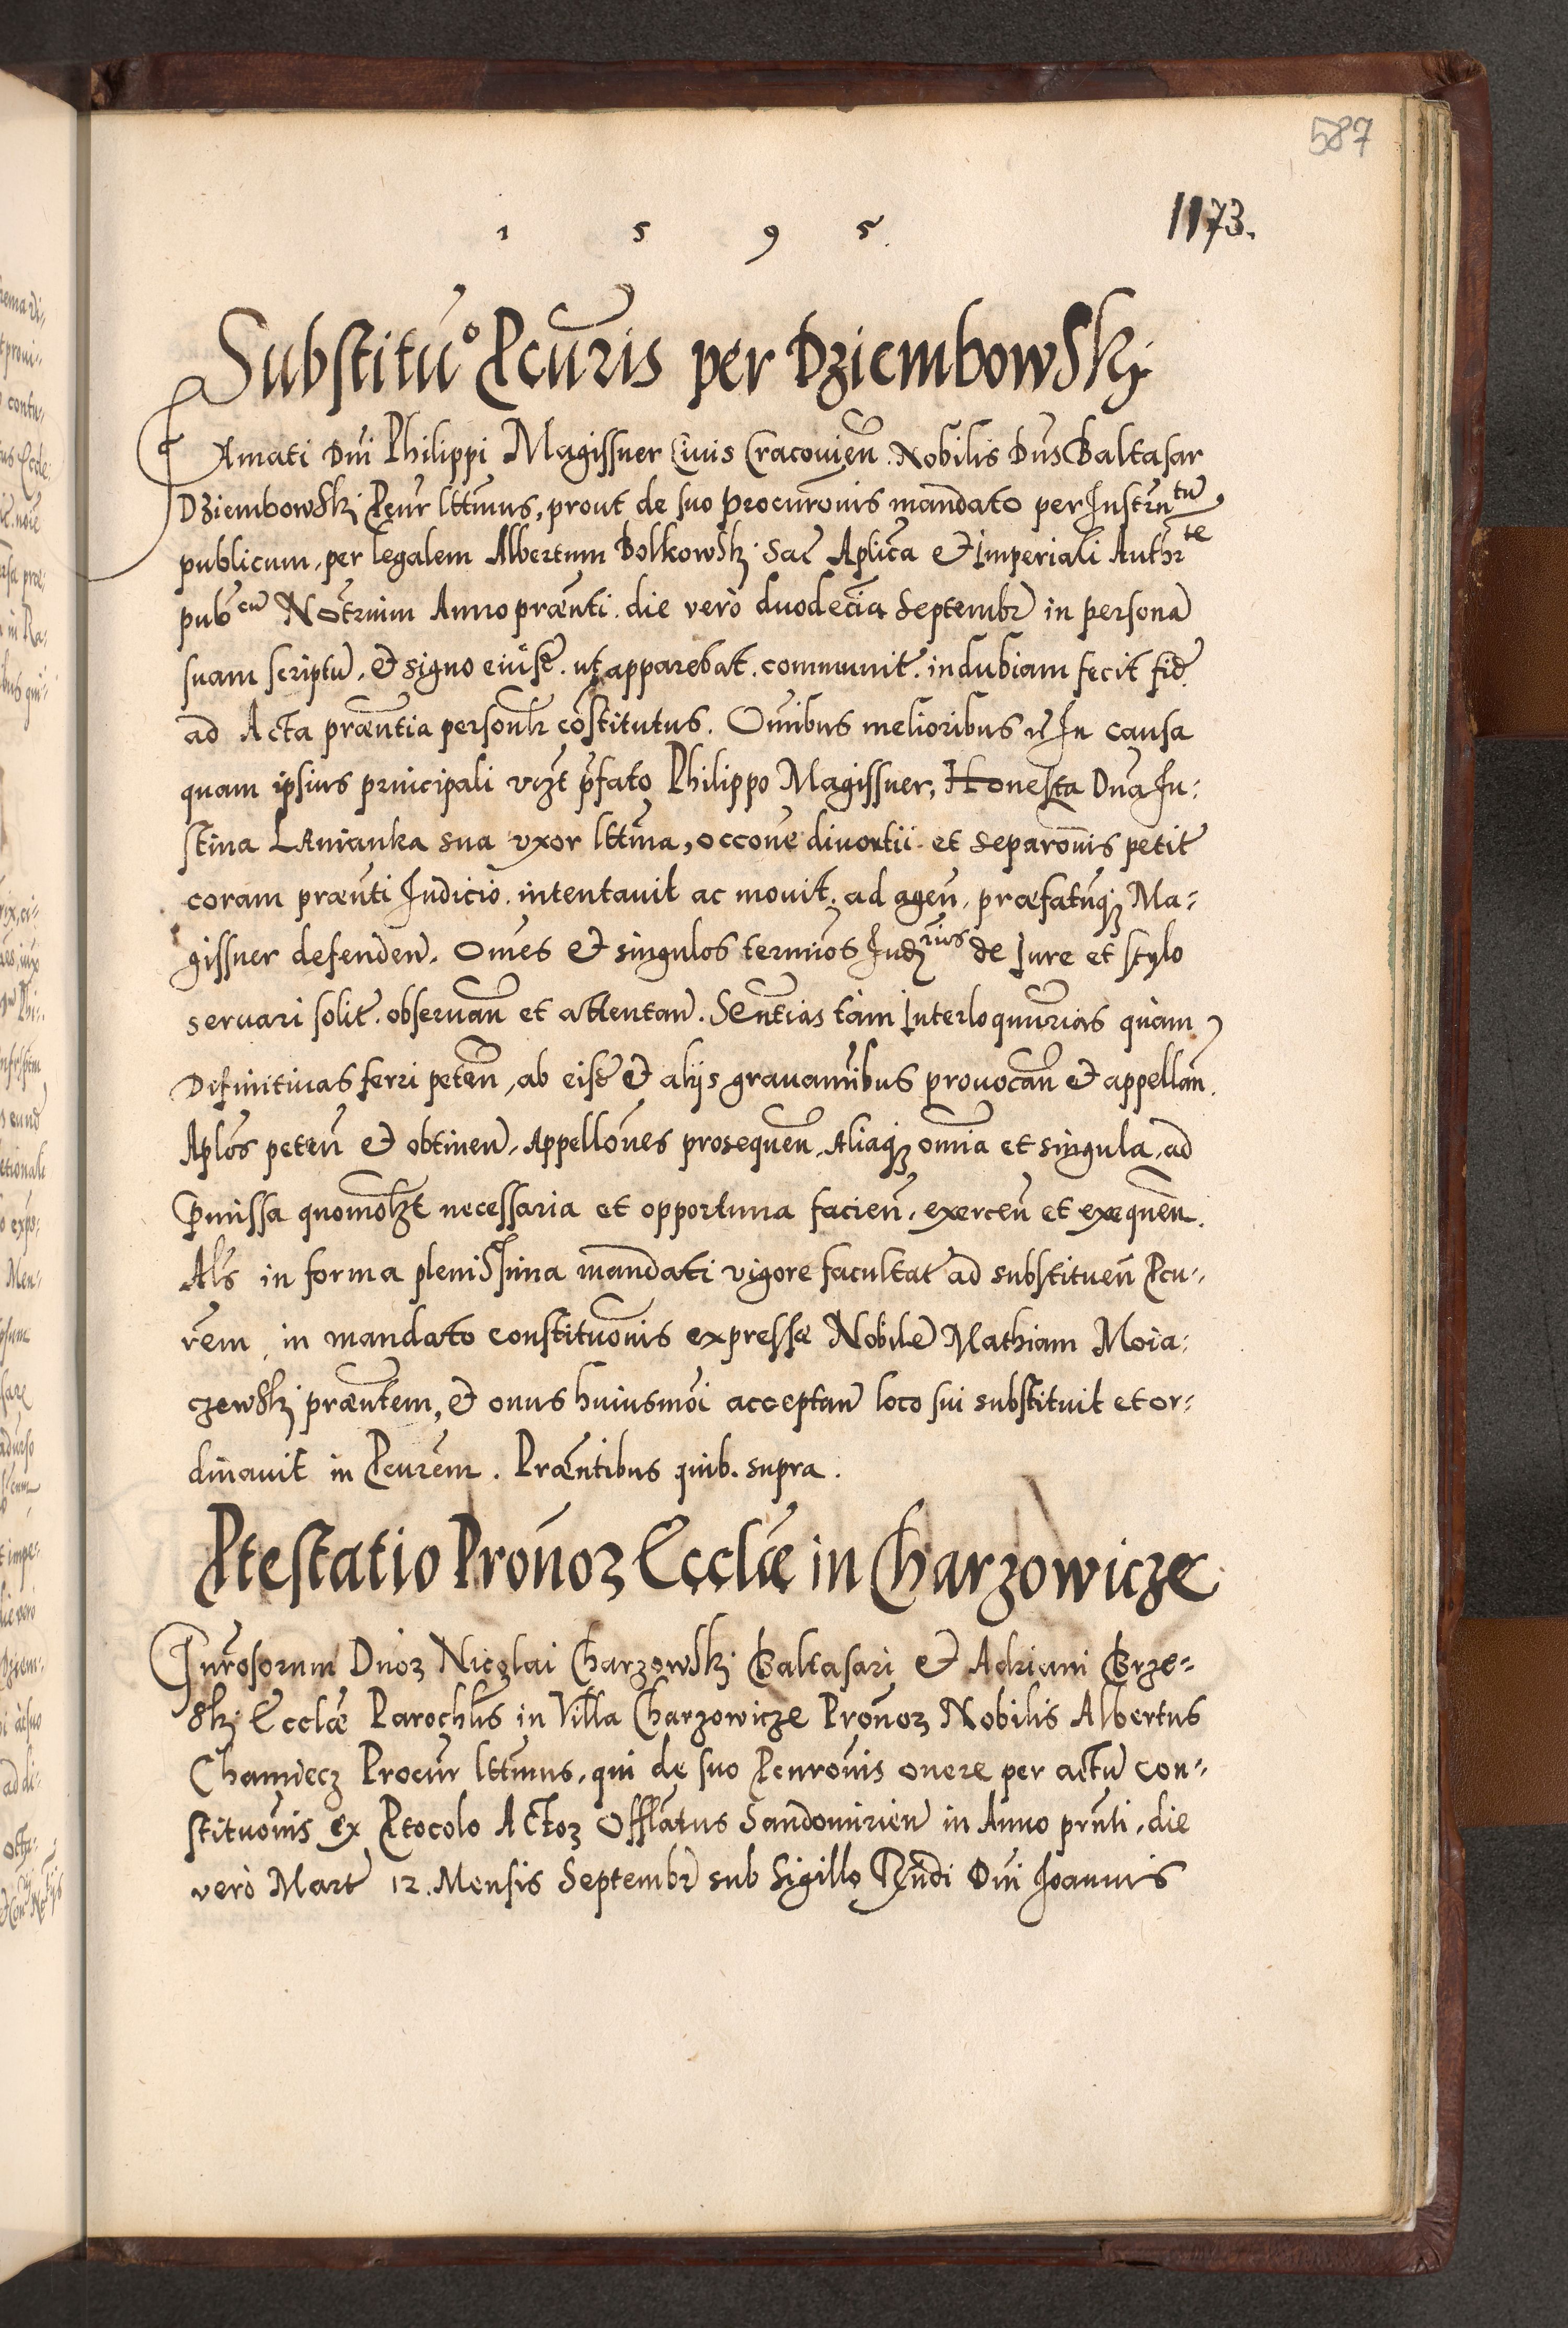 587
1173.
1 5 9 5.
Substitu͠o Pcu͠ris per Dziembowskj
Famati Dn͠i Philippi Magissner Ciuis Cracouien͠. Nobilis Dn͠s Baltasar
Dziembowskj Pcu͠r ltt͠imus, prout de suo procuro͠nis mandato per Instrn͠tu͠
publicum, per legalem Albertum Bolkowskj Sac͠ Aplic͠a et Imperiali Authr͠te
pubcu͠ No͠trium Anno præn͠ti. die verò duodeci͠a Septembr͠ in persona͠
suam scriptu͠, et signo eiusd͠. ut apparebat. communit͠. indubiam fecit fid͠.
ad Acta præn͠tia personl͠r co͠stitutus. Om͠ibus melioribus etc In causa
quam ipsius principali vizt p͠fato Philippo Magissner, Honesta Dn͠a Iu-
stina Lanianka sua vxor ltt͠ima, occo͠ne diuortii et separo͠nis petit͠
coram præn͠ti Iudicio. intentauit ac mouit. ad agen͠. præfatu͠q3 Ma-
gissner defenden͠. Om͠es et singulos termi͠os Iud͠rios de Iure et stylo
seruari solit͠. obseruan͠ et attentan͠. Sen͠tias tàm Interloqu͠urias quàm
Difinitiuas ferri peten͠, ab eisd͠ et alijs grauam͠ibus prouocan͠ et appellan͠.
Aplo͠s peten͠ et obtinen͠, Appello͠nes prosequen͠, Aliaq3 om͠ia et singula, ad
P͠missa quomo͠lzt necessaria et opportuna facien͠, exercen͠ et exequen͠.
Al͠s in forma plenissima mandati vigore facultat͠ ad substituen͠ Pcu-
re͠m, in mandato constituo͠nis expressæ Nobile͠ Mathiam Moia-
czewskj præn͠tem, et onus huiusmo͠i acceptan͠ loco sui substituit et or-
dinauit in Pcure͠m. Præn͠tibus quib. supra.
Ptestatio Prono͠3 Eccl͠æ in Charzowicze
Gnr͠osorum Dn͠o3 Nicolai Charzowskj Baltasari et Adriani Brze-
skj Eccl͠æ Parochl͠is in Villa Charzowicze Prono͠3 Nobilis Albertus
Chamiecz Procu͠r ltt͠imus, qui de suo Pcuro͠nis onere per actu͠ con-
stituo͠nis ex Ptocolo Acto3 Offl͠atus Sandomirien͠ in Anno prn͠ti, die
verò Mart͠ 12. Mensis Septembr͠ sub Sigillo Rn͠di Dn͠i Joannis